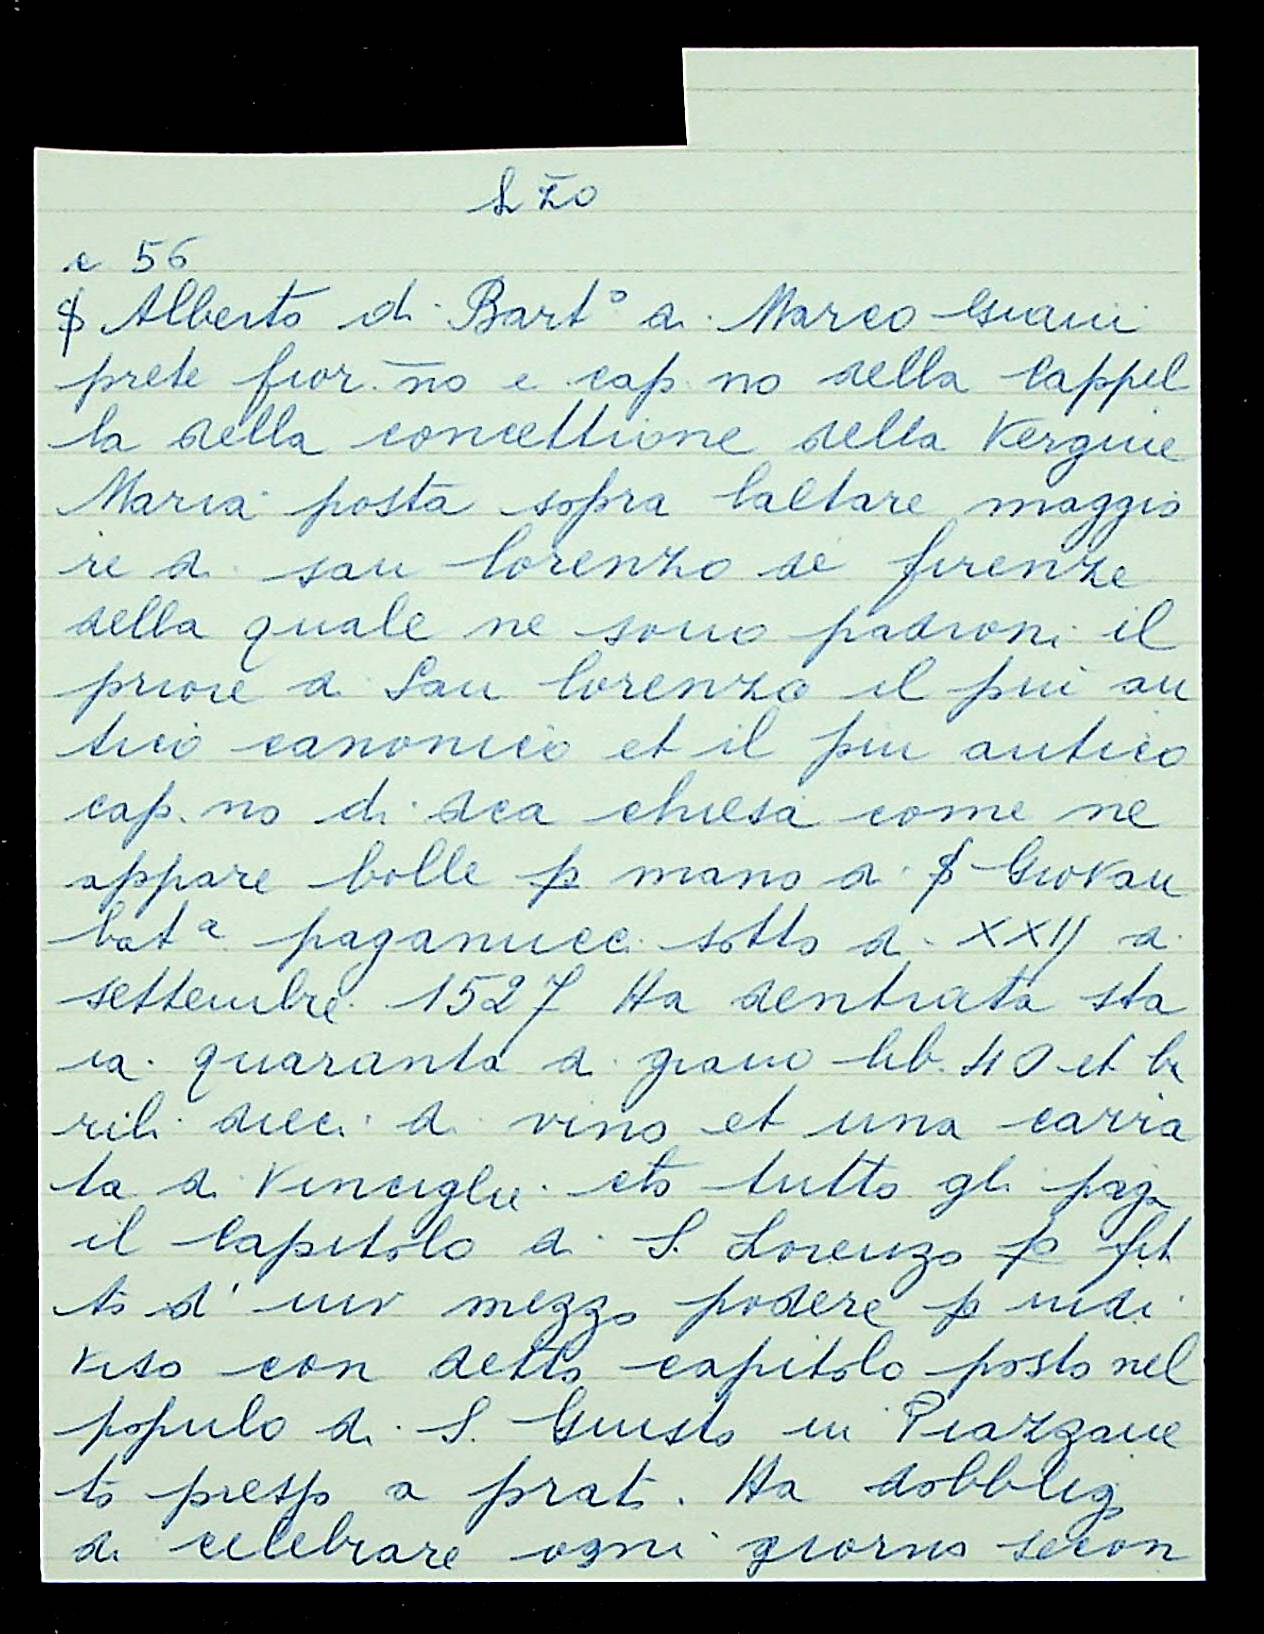 L zō
c 56
$ Alberto di Bart° di Marco Giani
prete fior. n̄o e cap. no della Cappel
la della concettione della Vergine
Maria posta sopra laltare maggio
re di san lorenzo de firenze
della quale ne sono padroni il
priore di San lorenzo il piu an
tico canonico et il piu antico
cap. no di dca chiesa come ne
appare bolle p mano di $ Giovan
batᵃ paganucci sotto di XXIJ di
settembre 1527 Ha dentrata sta
ia quaranta di grano lib. 40 et ba
rili dieci di vino et una carra
ta di Vinciglie. eto tutto gli paga
il Capitolo di S. Lorenzo p fit
to d' uno mezzo podere p indi
viso con detto capitolo posto nel
populo di S. Giusto in Piazzane
to presso a prato. Ha dobbligo
di celebrare ogni giorno secon